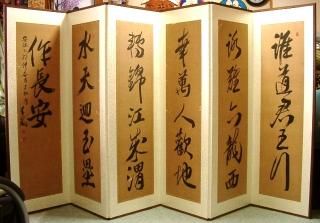 誰道君王行
路難六龍西
幸萬人歡地
轉錦江成渭
水天迴玉壘
作長安